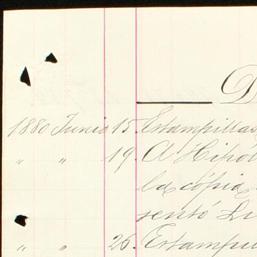 D
1880 Junio 15. Estampillas
" " 19. A Hipól
la cópia
sentó Lu
" " 26. Estampi